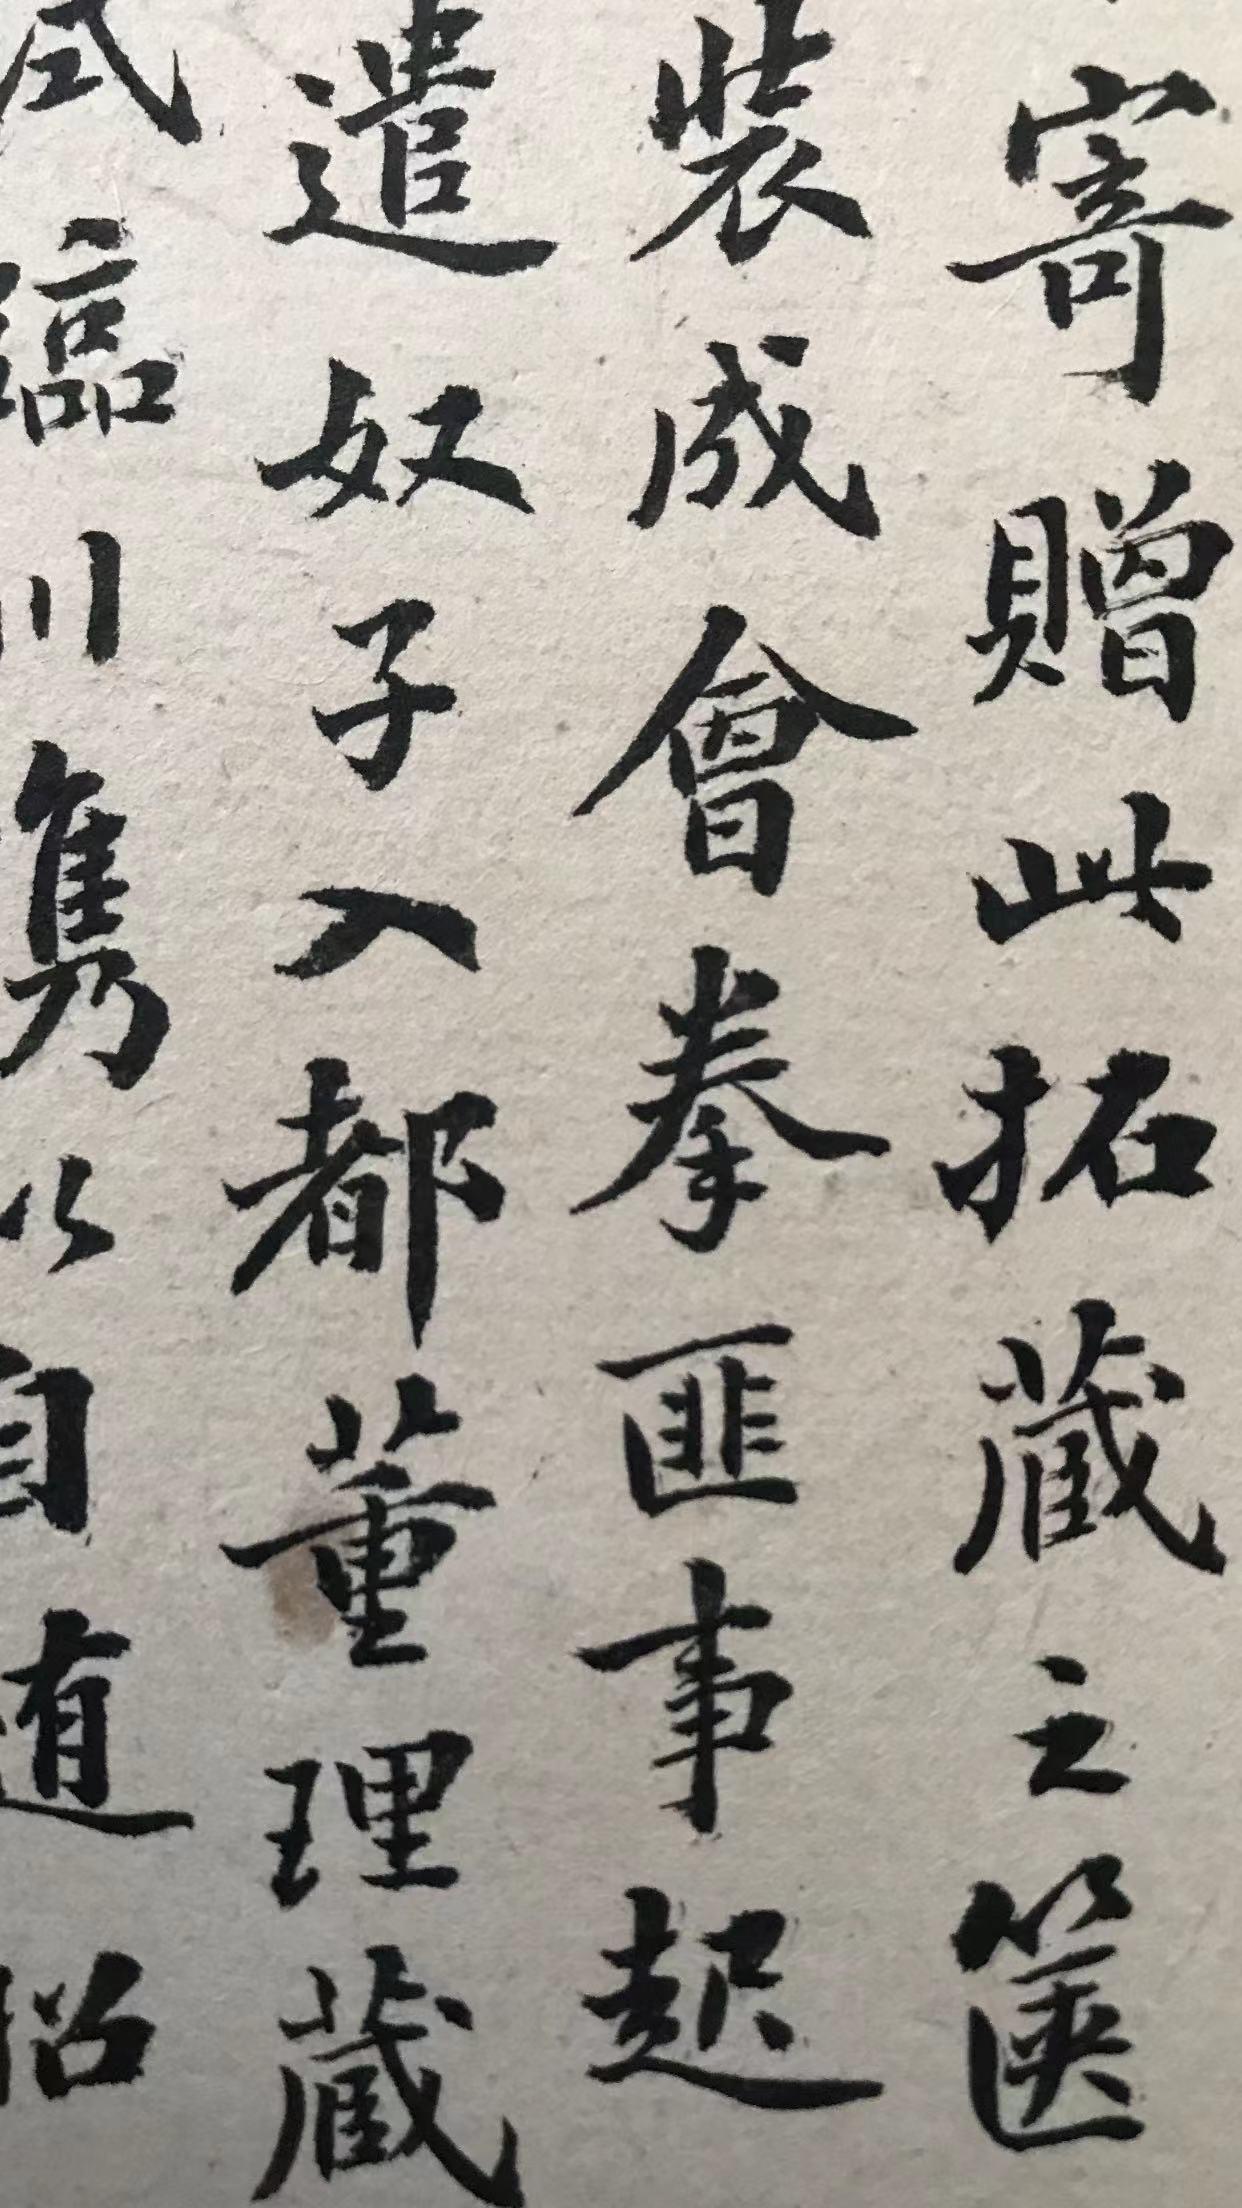 寄贈此拓藏之篋
裝成會拳匪事起
遣奴子入都董理藏
臨川雋以自道